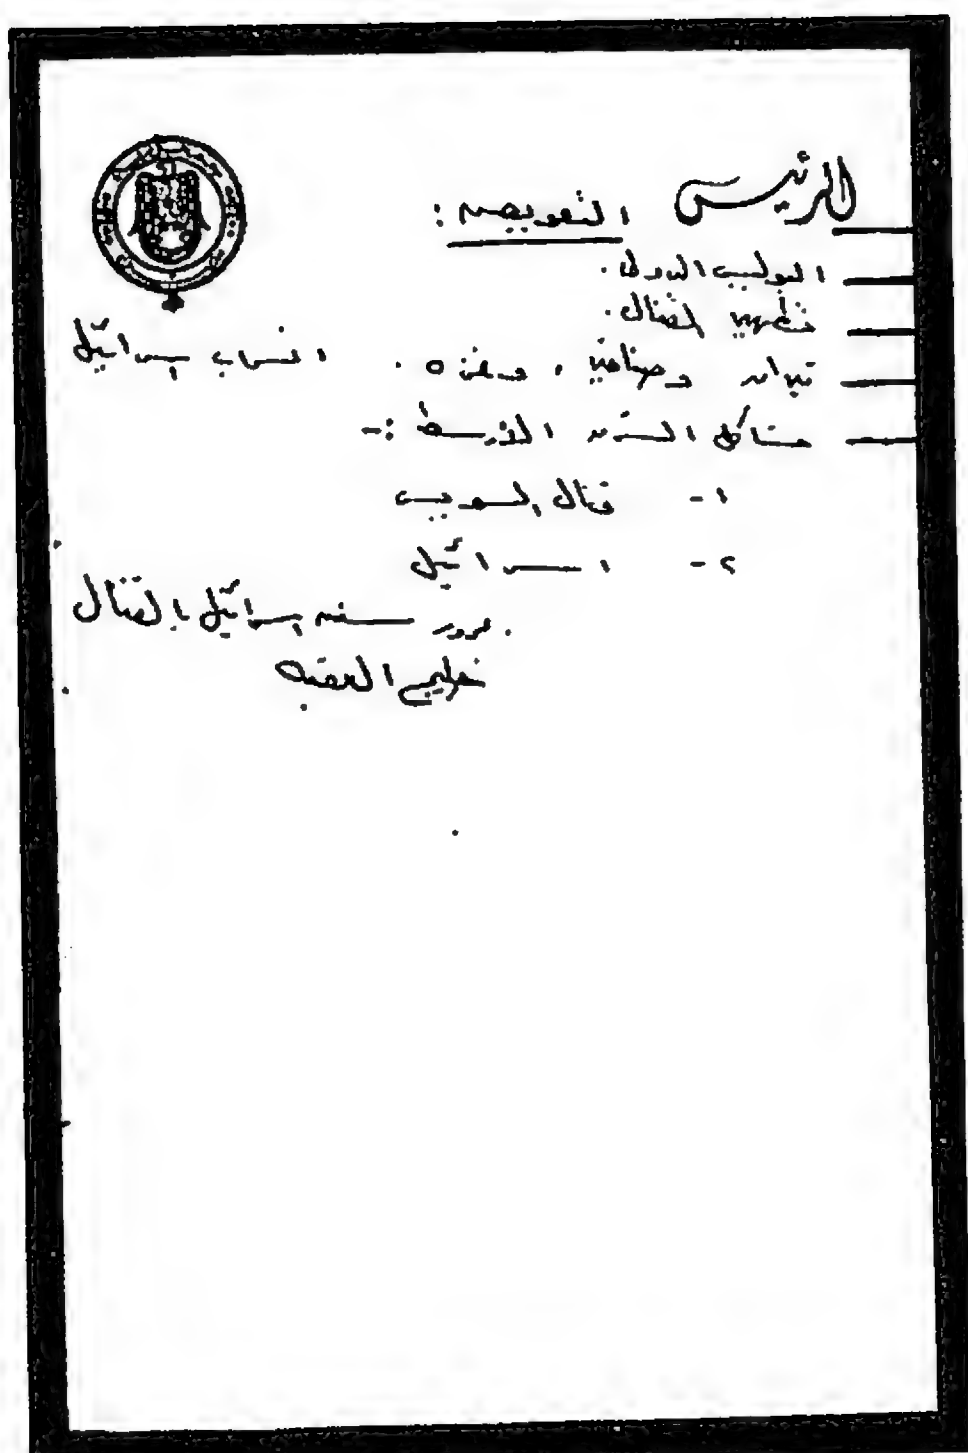 الرئيس التعويض :
البوليس الدولى .
تطهير القنال .
تيران وصنافير ، وغزه . انسحاب إسرائيل
مشاكل الشرق الأوسط :-
١- قنال السويس
٢- إسرائيل
. مرور سفن إسرائيل بالقنال
خليج العقبه